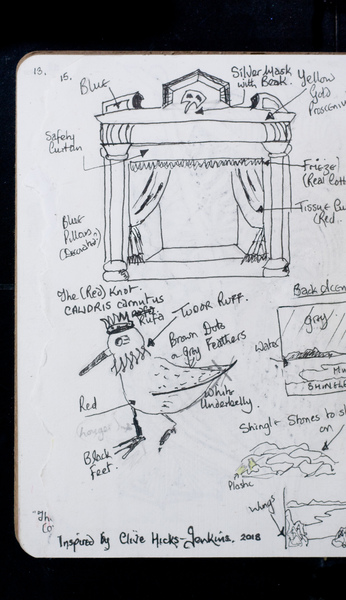 13.
15.
Blue
Silver Mask
with Beak.
Yellow
Gold
Prosceniu
Safety
Curtain
Frieze
(Real Cott
Tissue Pu
(Red.
Blue
Pillows
The (Red) Knot.
CALIDRIS canutus
Rufa
TUDOR RUFF.
Brown Dots
on Grey Feathers
Red
White
Underbelly
longer
Black
Feet.
Back Scen
gray
Water
Mu
SHINGLE
Shingle Stones to s
on
Plastic
Wings
"Th
Co
Inspired by Clive Hicks-Jenkins. 2018